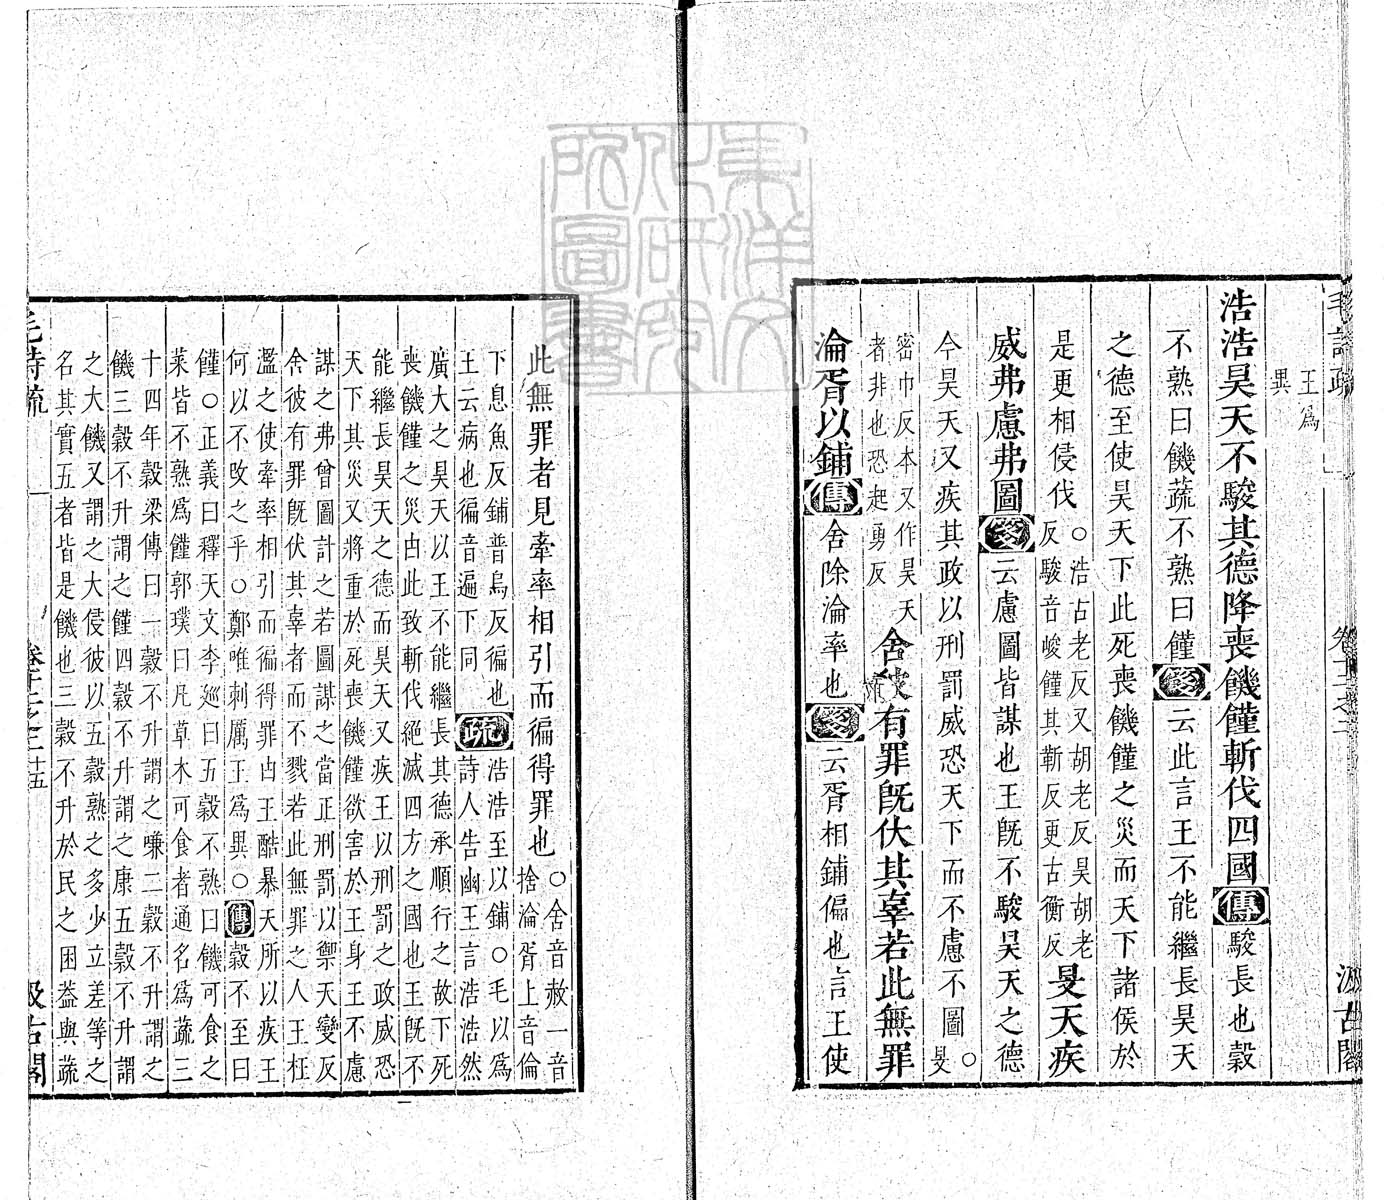 毛詩疏
卷十二之二
汲古閣
王爲
異
浩浩昊天不駿其德降喪饑饉斬伐四國傳駿長也穀
不熟曰饑蔬不熟曰饉箋云此言王不能繼長昊天
之德至使昊天下此死喪饑饉之災而天下諸侯於
是更相侵伐○浩古老反又胡老反昊胡老
反駿音峻饉其靳反更古衡反旻天疾
威弗慮弗圖箋云慮圖皆謀也王旣不駿昊天之德
今昊天又疾其政以刑罰威恐天下而不慮不圖○旻
密巾反本又作昊天
者非也恐起勇反舍彼有罪旣伏其辜若此無罪
淪胥以鋪傳舍除淪率也箋云胥相鋪徧也言王使
此無罪者見牽率相引而徧得罪也○舍音赦一音
捨淪胥上音倫
下息魚反鋪普烏反徧也
王云病也徧音遍下同疏浩浩至以鋪○毛以爲
詩人告幽王言浩浩然
廣大之昊天以王不能繼長其德承順行之故下死
喪饑饉之災由此致斬伐絕滅四方之國也王旣不
能繼長昊天之德而昊天又疾王以刑罰之政威恐
天下其災又將重於死喪饑饉欲害於王身王不慮
謀之弗曾圖計之若圖謀之當正刑罰以禦天變反
舍彼有罪旣伏其辜者而不戮若此無罪之人王枉
濫之使牽率相引而徧得罪由王酷暴天所以疾王
何以不改之乎○鄭唯刺厲王爲異○傳穀不至曰
饉○正義曰釋天文李巡曰五穀不熟曰饑可食之
菜皆不熟爲饉郭璞曰凡草木可食者通名爲蔬三
十四年穀梁傳曰一穀不升謂之嗛二穀不升謂之
饑三穀不升謂之饉四穀不升謂之康五穀不升謂
之大饑又謂之大侵彼以五穀熟之多少立差等之
名其實五者皆是饑也三穀不升於民之困葢與蔬
毛詩疏
卷十二之二
十五
汲古閣